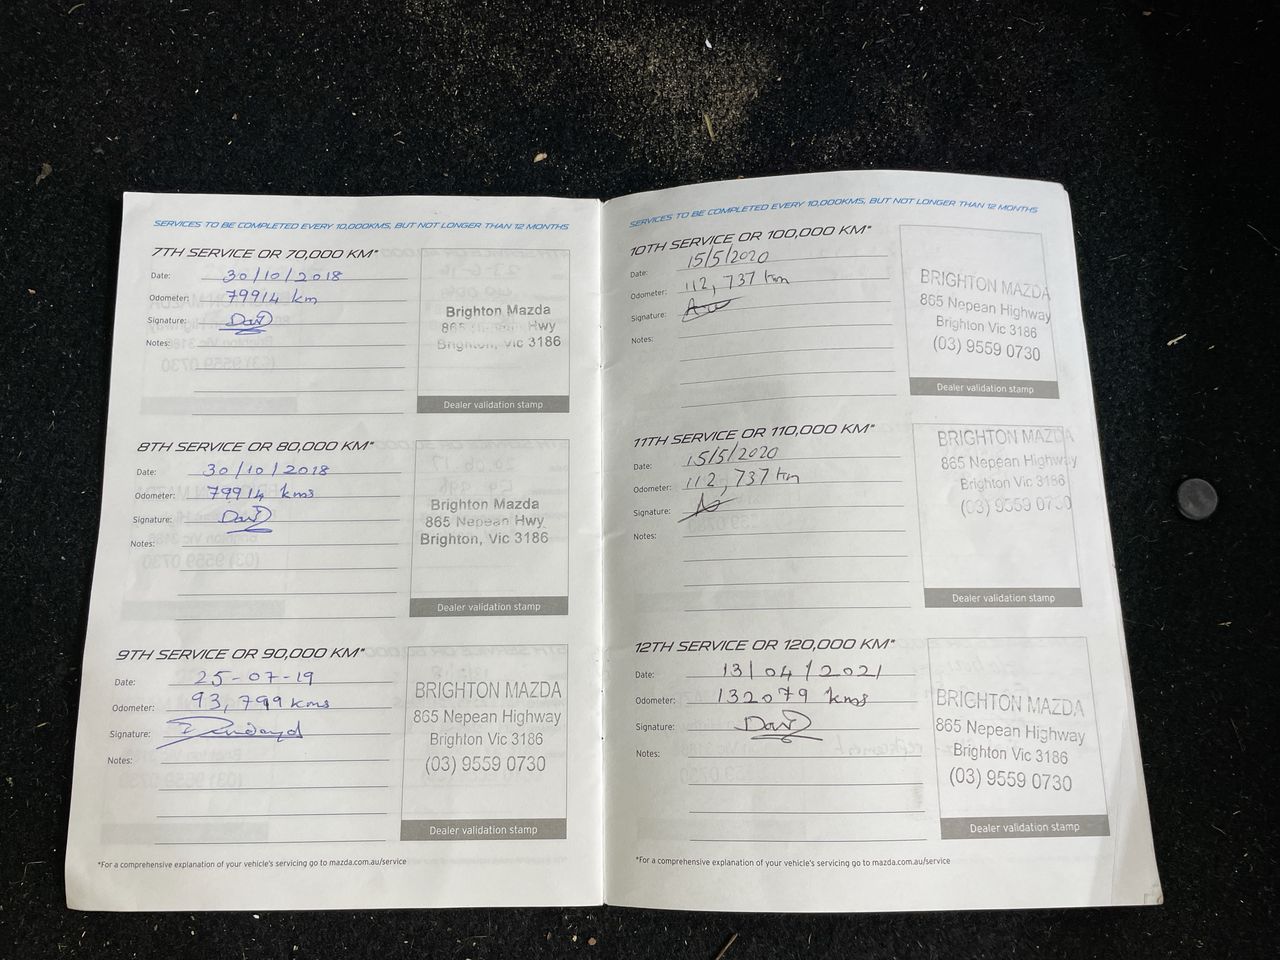 SERVICES TO BE COMPLETED EVERY 10,000KMS, BUT NOT LONGER THAN 12 MONTHS
7TH SERVICE OR 70,000 KM*
Date: 30/10/2018
Odometer: 79914 km
Signature:
Notes:
Brighton Mazda
865 Hwy
Brighton, Vic 3186
Dealer validation stamp
8TH SERVICE OR 80,000 KM*
Date: 30/10/2018
Odometer: 79914 kms
Signature:
Notes:
Brighton Mazda
865 Nepean Hwy
Brighton, Vic 3186
Dealer validation stamp
9TH SERVICE OR 90,000 KM*
Date: 25-07-19
Odometer: 93,799 kms
Signature:
Notes:
BRIGHTON MAZDA
865 Nepean Highway
Brighton Vic 3186
(03) 9559 0730
Dealer validation stamp
*For a comprehensive explanation of your vehicle's servicing go to mazda.com.au/service
SERVICES TO BE COMPLETED EVERY 10,000KMS, BUT NOT LONGER THAN 12 MONTHS
10TH SERVICE OR 100,000 KM*
Date: 15/5/2020
Odometer: 112,737 km
Signature:
Notes:
BRIGHTON MAZDA
865 Nepean Highway
Brighton Vic 3186
(03) 9559 0730
Dealer validation stamp
11TH SERVICE OR 110,000 KM*
Date: 15/5/2020
Odometer: 112,737 km
Signature:
Notes:
BRIGHTON MAZDA
865 Nepean Highway
Brighton Vic 3186
(03) 9559 0730
Dealer validation stamp
12TH SERVICE OR 120,000 KM*
Date: 13/04/2021
Odometer: 132079 kms
Signature:
Notes:
BRIGHTON MAZDA
865 Nepean Highway
Brighton Vic 3186
(03) 9559 0730
Dealer validation stamp
*For a comprehensive explanation of your vehicle's servicing go to mazda.com.au/service